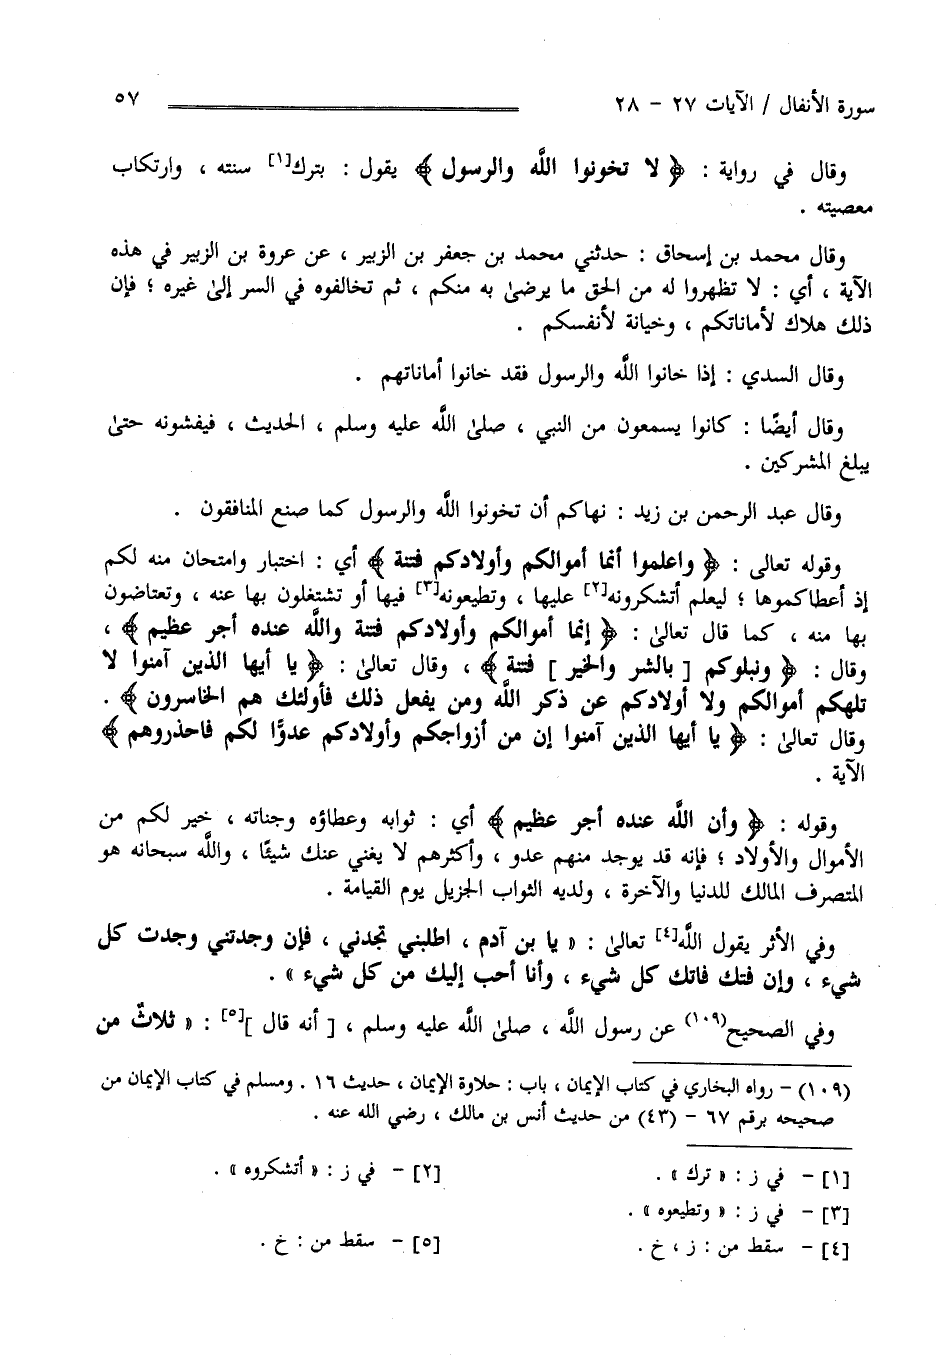 سورة الأنفال / الآيات ٢٧ – ٢٨ ٥٧
وقال في رواية : ﴿ لا تخونوا اللَّه والرسول ﴾ يقول : بترك[١] سنته ، وارتكاب
معصيته .
وقال محمد بن إسحاق : حدثني محمد بن جعفر بن الزبير ، عن عروة بن الزبير في هذه
الآية ، أي : لا تظهروا له من الحق ما يرضىٰ به منكم ، ثم تخالفوه في السر إلىٰ غيره ؛ فإن
ذلك هلاك لأماناتكم ، وخيانة لأنفسكم .
وقال السدي : إذا خانوا اللَّه والرسول فقد خانوا أماناتهم .
وقال أيضًا : كانوا يسمعون من النبي ، صلىٰ اللَّه عليه وسلم ، الحديث ، فيفشونه حتىٰ
يبلغ المشركين .
وقال عبد الرحمن بن زيد : نهاكم أن تخونوا اللَّه والرسول كما صنع المنافقون .
وقوله تعالى : ﴿ واعلموا أنما أموالكم وأولادكم فتنة ﴾ أي : اختبار وامتحان منه لكم
إذ أعطاكموها ؛ ليعلم أتشكرونه[٢] عليها ، وتطيعونه[٣] فيها أو تشتغلون بها عنه ، وتعتاضون
بها منه ، كما قال تعالىٰ : ﴿ إنما أموالكم وأولادكم فتنة واللَّه عنده أجر عظيم ﴾ ،
وقال : ﴿ ونبلوكم [ بالشر والخير ] فتنة ﴾ ، وقال تعالىٰ : ﴿ يا أيها الذين آمنوا لا
تلهكم أموالكم ولا أولادكم عن ذكر اللَّه ومن يفعل ذلك فأولئك هم الخاسرون ﴾ .
وقال تعالىٰ : ﴿ يا أيها الذين آمنوا إن من أزواجكم وأولادكم عدوًّا لكم فاحذروهم ﴾
الآية .
وقوله : ﴿ وأن اللَّه عنده أجر عظيم ﴾ أي : ثوابه وعطاؤه وجناته ، خير لكم من
الأموال والأولاد ؛ فإنه قد يوجد منهم عدو ، وأكثرهم لا يغني عنك شيئًا ، واللَّه سبحانه هو
المتصرف المالك للدنيا والآخرة ، ولديه الثواب الجزيل يوم القيامة .
وفي الأثر يقول اللَّه[٤] تعالىٰ : « يا بن آدم ، اطلبني تجدني ، فإن وجدتني وجدت كل
شيء ، وإن فتك فاتك كل شيء ، وأنا أحب إليك من كل شيء » .
وفي الصحيح(١٠٩) عن رسول اللَّه ، صلىٰ اللَّه عليه وسلم ، [ أنه قال ][٥] : « ثلاثٌ من
(١٠٩) – رواه البخاري في كتاب الإيمان ، باب : حلاوة الإيمان ، حديث ١٦ . ومسلم في كتاب الإيمان من
صحيحه برقم ٦٧ – (٤٣) من حديث أنس بن مالك ، رضي الله عنه .
[١] – في ز : « ترك » . [٢] – في ز : « أتشكروه » .
[٣] – في ز : « وتطيعوه » .
[٤] – سقط من : ز ، خ . [٥] – سقط من : خ .